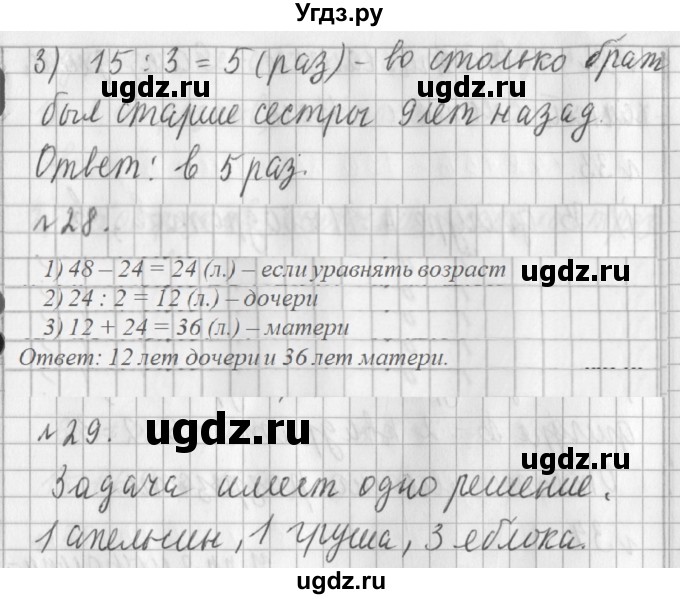 Угдз.ру
3) 15 : 3 = 5 (раз) - во столько брат
ugdz.ru ugdz.ru
был старше сестры 9 лет назад.
Ответ: в 5 раз.
№28.
1) 48 – 24 = 24 (л.) – если уравнять возраст ugdz.ru
2) 24 : 2 = 12 (л.) – дочери
3) 12 + 24 = 36 (л.) – матери
Ответ: 12 лет дочери и 36 лет матери.
№29. ugdz.ru
ugdz.ru
Задача имеет одно решение.
1 апельсин, 1 груша, 3 яблока.
ugdz.ru